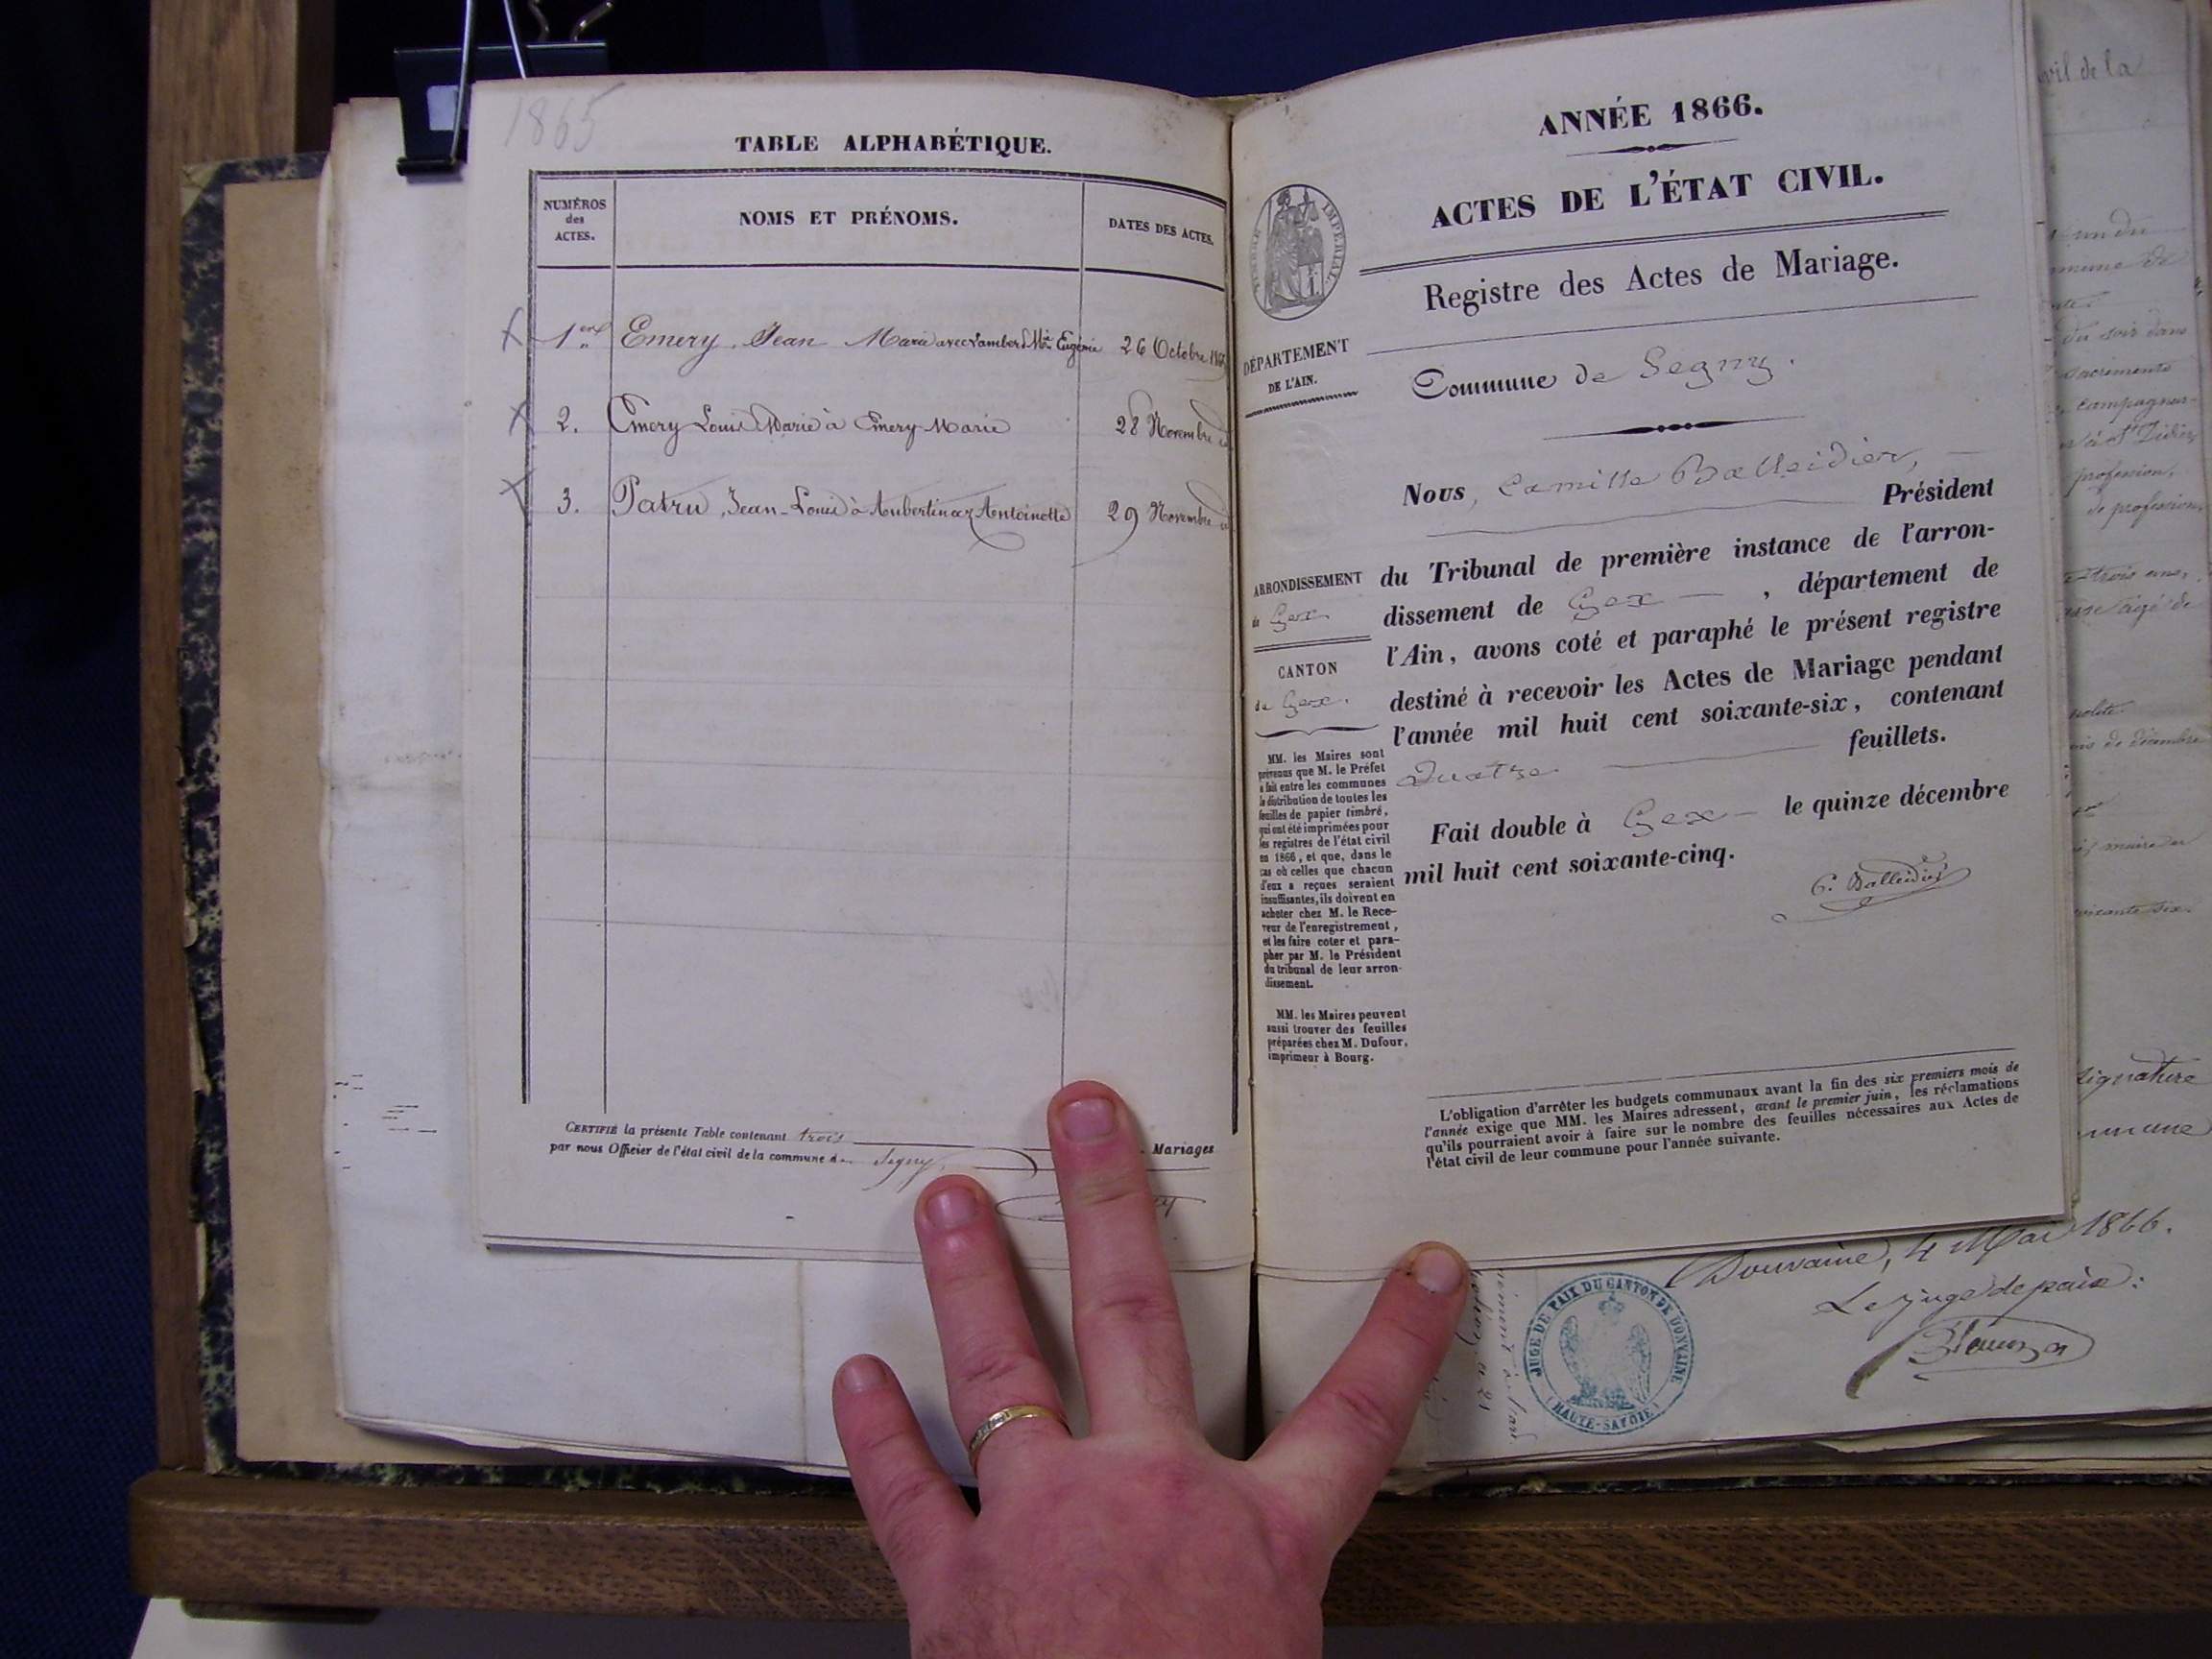 1865
TABLE ALPHABÉTIQUE.
NUMÉROS
des
ACTES.
NOMS ET PRÉNOMS.
DATES DES ACTES.
1er Emery Jean Marie avec Lambert Mie Eugénie 26 Octobre
2. Emery Louis Marie à Emery Marie 28 Novembre
3. Patru, Jean-Louis à Aubertinaz Antoinette 29 Novembre
CERTIFIÉ la présente Table contenant trois Mariages
par nous Officier de l'état civil de la commune de Segny,
ANNÉE 1866.
ACTES DE L'ÉTAT CIVIL.
TIMBRE IMPÉRIAL.
Registre des Actes de Mariage.
DÉPARTEMENT
DE L'AIN.
Commune de Segny.
Nous, Camille Balleidier,
Président
du Tribunal de première instance de l'arron-
dissement de Gex, département de
l'Ain, avons coté et paraphé le présent registre
destiné à recevoir les Actes de Mariage pendant
l'année mil huit cent soixante-six, contenant
Quatre feuillets.
Fait double à Gex le quinze décembre
mil huit cent soixante-cinq.
C. Balleidier
ARRONDISSEMENT
de Gex
CANTON
de Gex.
MM. les Maires sont
prévenus que M. le Préfet
a fait entre les communes
la distribution de toutes les
feuilles de papier timbré,
qui ont été imprimées pour
les registres de l'état civil
en 1866, et que, dans le
cas où celles que chacun
d'eux a reçues seraient
insuffisantes, ils doivent en
acheter chez M. le Rece-
veur de l'enregistrement,
et les faire coter et para-
pher par M. le Président
du tribunal de leur arron-
dissement.
MM. les Maires peuvent
aussi trouver des feuilles
préparées chez M. Dufour,
imprimeur à Bourg.
L'obligation d'arrêter les budgets communaux avant la fin des six premiers mois de
l'année exige que MM. les Maires adressent, avant le premier juin, les réclamations
qu'ils pourraient avoir à faire sur le nombre des feuilles nécessaires aux Actes de
l'état civil de leur commune pour l'année suivante.
civil de la
du soir dans
sacrements
campagnar-
profession,
de profession
trois ans,
âgé de
de décembre
maire de
soixante six.
signature
commune
Douvaine, 4 Mai 1866.
Le juge de paix:
JUGE DE PAIX DU CANTON DE DOUVAINE
(HAUTE-SAVOIE)